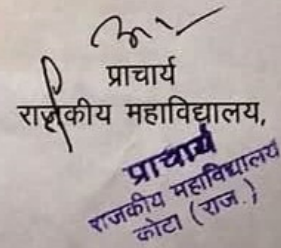 प्राचार्य
राजकीय महाविद्यालय,
प्राचार्य
राजकीय महाविद्यालय
कोटा (राज.)